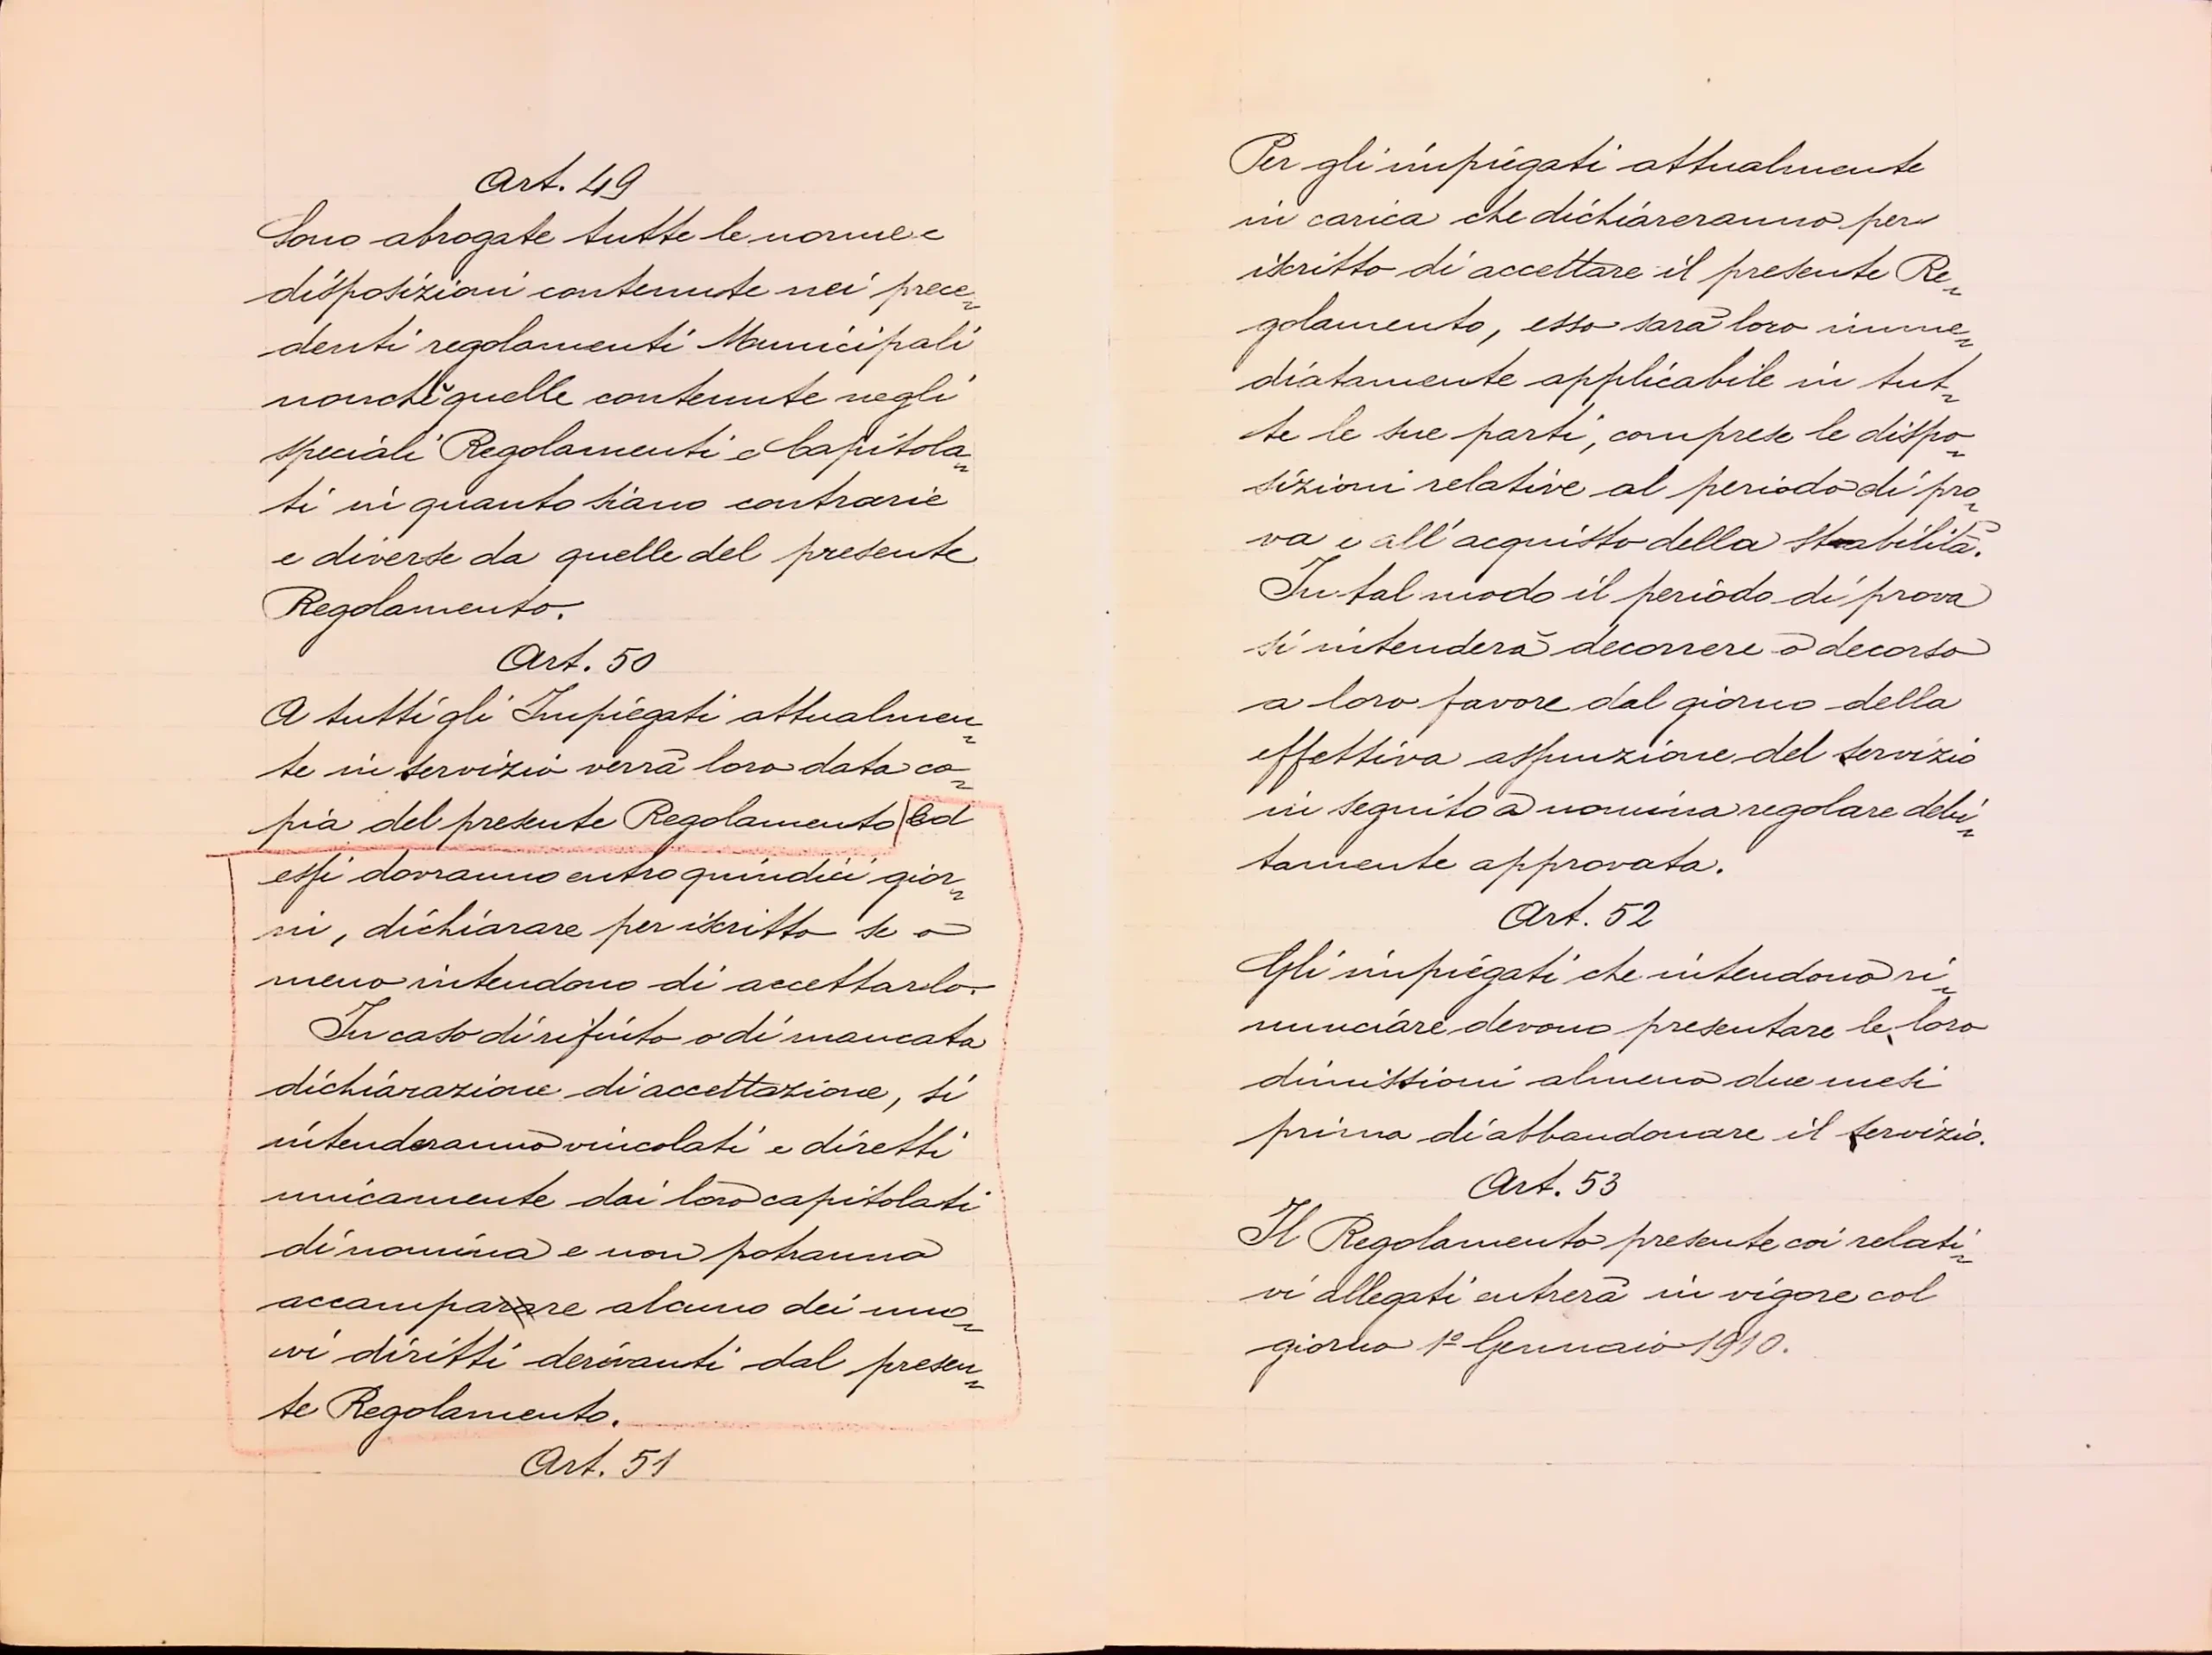 Art. 49
Sono abrogate tutte le norme e
disposizioni contenute nei prece=
denti regolamenti Municipali
nonchè quelle contenute negli
speciali Regolamenti e Capitola=
ti in quanto siano contrarie
e diverse da quelle del presente
Regolamento.
Art. 50
A tutti gli Impiegati attualmen=
te in servizio verrà loro data co=
pia del presente Regolamento ed
essi dovranno entro quindici gior=
ni, dichiarare per iscritto se o
meno intendono di accettarlo.
In caso di rifiuto o di mancata
dichiarazione di accettazione, si
intenderanno vincolati e diretti
unicamente dai loro capitolati
di nomina e non potranno
accampare alcuno dei nuo=
vi diritti derivanti dal presen=
te Regolamento.
Art. 51
Per gli impiegati attualmente
in carica che dichiareranno per
iscritto di accettare il presente Re=
golamento, esso sarà loro imme=
diatamente applicabile in tut=
te le sue parti, comprese le dispo=
sizioni relative al periodo di pro=
va e all'acquisto della stabilità.
In tal modo il periodo di prova
si intenderà decorrere o decorso
a loro favore dal giorno della
effettiva assunzione del servizio
in seguito a nomina regolare debi=
tamente approvata.
Art. 52
Gli impiegati che intendono ri=
nunciare devono presentare le loro
dimissioni almeno due mesi
prima di abbandonare il servizio.
Art. 53
Il Regolamento presente coi relati=
vi allegati entrerà in vigore col
giorno 1º Gennaio 1910.